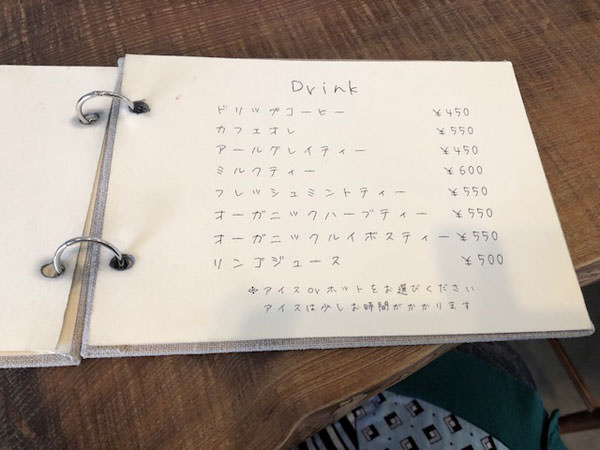 Drink
ドリップコーヒー ¥450
カフェオレ ¥550
アールグレイティー ¥450
ミルクティー ¥600
フレッシュミントティー ¥550
オーガニックハーブティー ¥550
オーガニックルイボスティー ¥550
リンゴジュース ¥500
※アイスorホットをお選びください
アイスは少しお時間がかかります